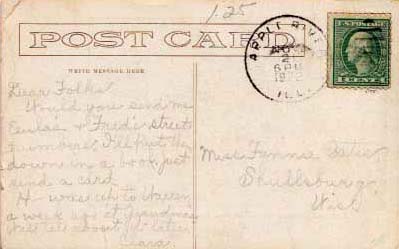 1.25
POST CARD
WRITE MESSAGE HERE
APPLE RIVER
2
6 PM
ILL.
U.S. POSTAGE
1 CENT 1
Dear Folks
Would you send me
Eulas & Fred's street
numbers. I'll put them
down in a book just
send a card.
was up to Warren
a week ago at Grandmas
tell about it later
Clara.
Miss Fannie
Scullsburg
Wis